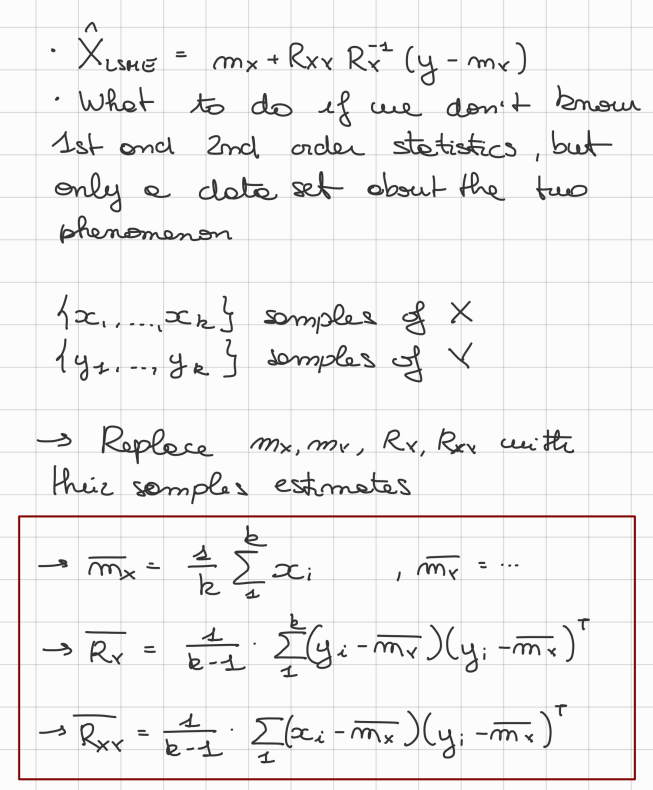 · X̂_LSME = m_x + R_XY R_Y^-1 (y - m_Y)
· What to do if we don't know
1st and 2nd order statistics, but
only a data set about the two
phenomenon
{x_1, ..., x_k} samples of X
{y_1, ..., y_k} samples of Y
→ Replace m_x, m_Y, R_Y, R_XY with
their samples estimates
→ \overline{m_x} = 1/k ∑_1^k x_i , \overline{m_Y} = ...
→ \overline{R_Y} = 1/(k-1) · ∑_1^k (y_i - \overline{m_Y})(y_i - \overline{m_Y})^T
→ \overline{R_XY} = 1/(k-1) · ∑_1 (x_i - \overline{m_x})(y_i - \overline{m_Y})^T